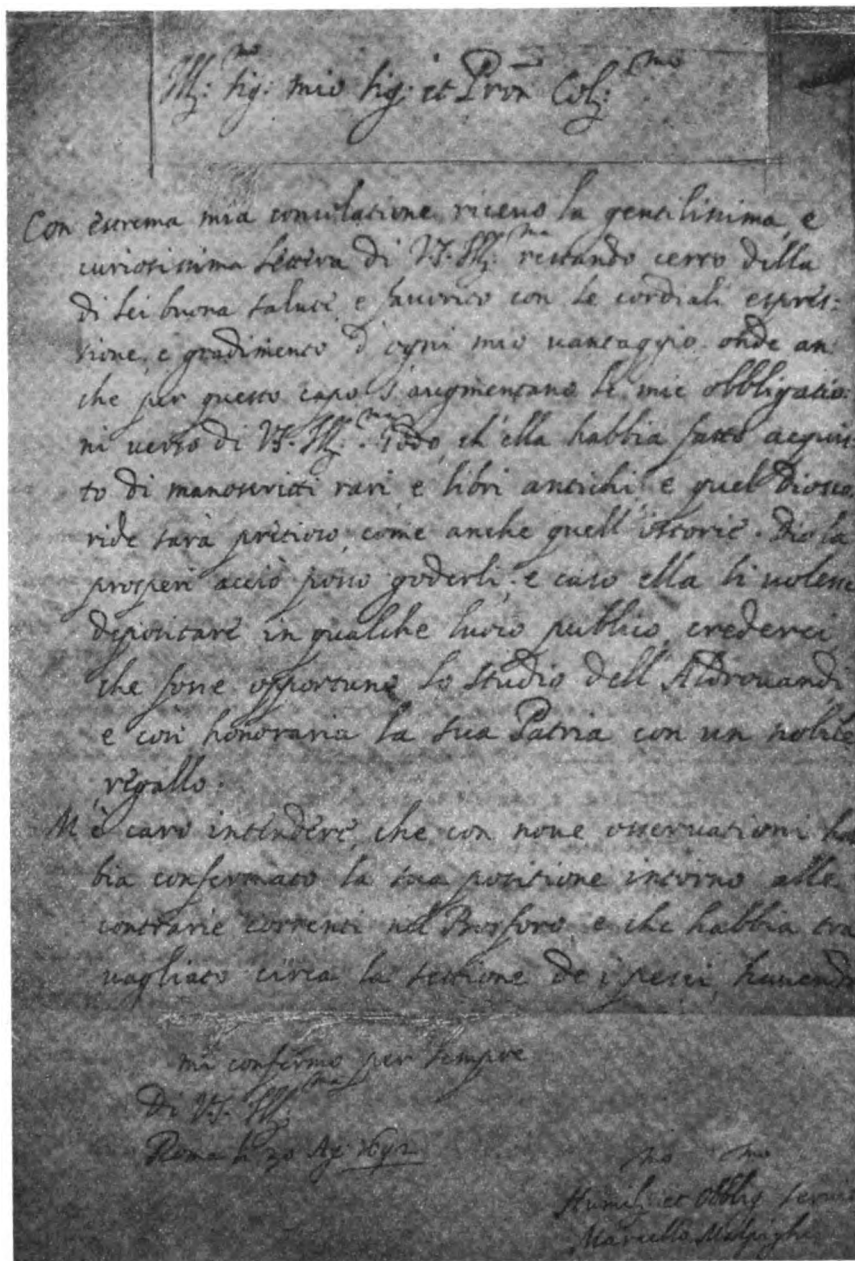 Ill:mo Sig: mio Sig: et Pron Col:mo
Con estrema mia consolatione riceuo la gentilissima, e
curiosissima lettera di V.S. Ill:ma restando certo della
di lei buona salute, e fauorito con le cordiali espres:
sione, e gradimento d'ogni mio uantaggio, onde an
che per questo capo s'augmentano le mie obbligatio:
ni uerso di V.S. Ill:ma Godo, ch'ella habbia fatto acquis:
to di manoscritti rari, e libri antichi, e quel Diosco
ride sarà pretioso, come anche quell'istorie. Dio la
prosperi acciò possa goderli, e caso ella li uolesse
depositare in qualche luoco publico, crederei,
che fosse opportuno lo studio dell'Aldrouandi
e cosi honoraria la sua Patria con un nobile
regallo.
M'è caro intendere, che con noue osseruationi ha
bia confermato la sua positione intorno alle
contrarie correnti nel Bosforo, e che habbia tra
uagliato circa la settione de i pesci, hauendo
mi confermo per sempre
Di V.S. Ill:ma
Roma li 20 Ag 1692
Humil:mo et Obblig:mo Seruit
Marcello Malpighi